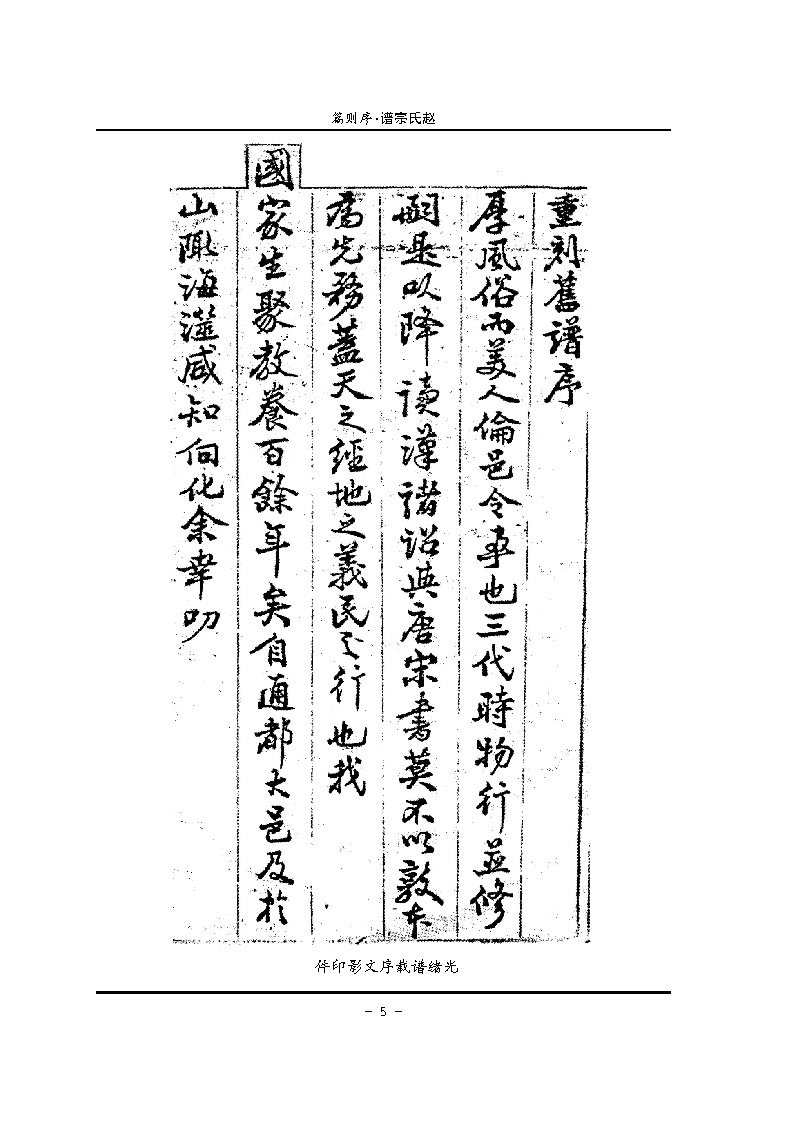 赵氏宗谱·序则篇
重刻舊譜序
厚風俗而美人倫邑令事也三代時物行並修
嗣是以降讀漢諸詔與唐宋書莫不以敦本
為先務蓋天之經地之義民之行也我
國家生聚教養百餘年矣自通都大邑及於
山陬海澨咸知向化余幸叨
光绪谱载序文影印件
- 5 -